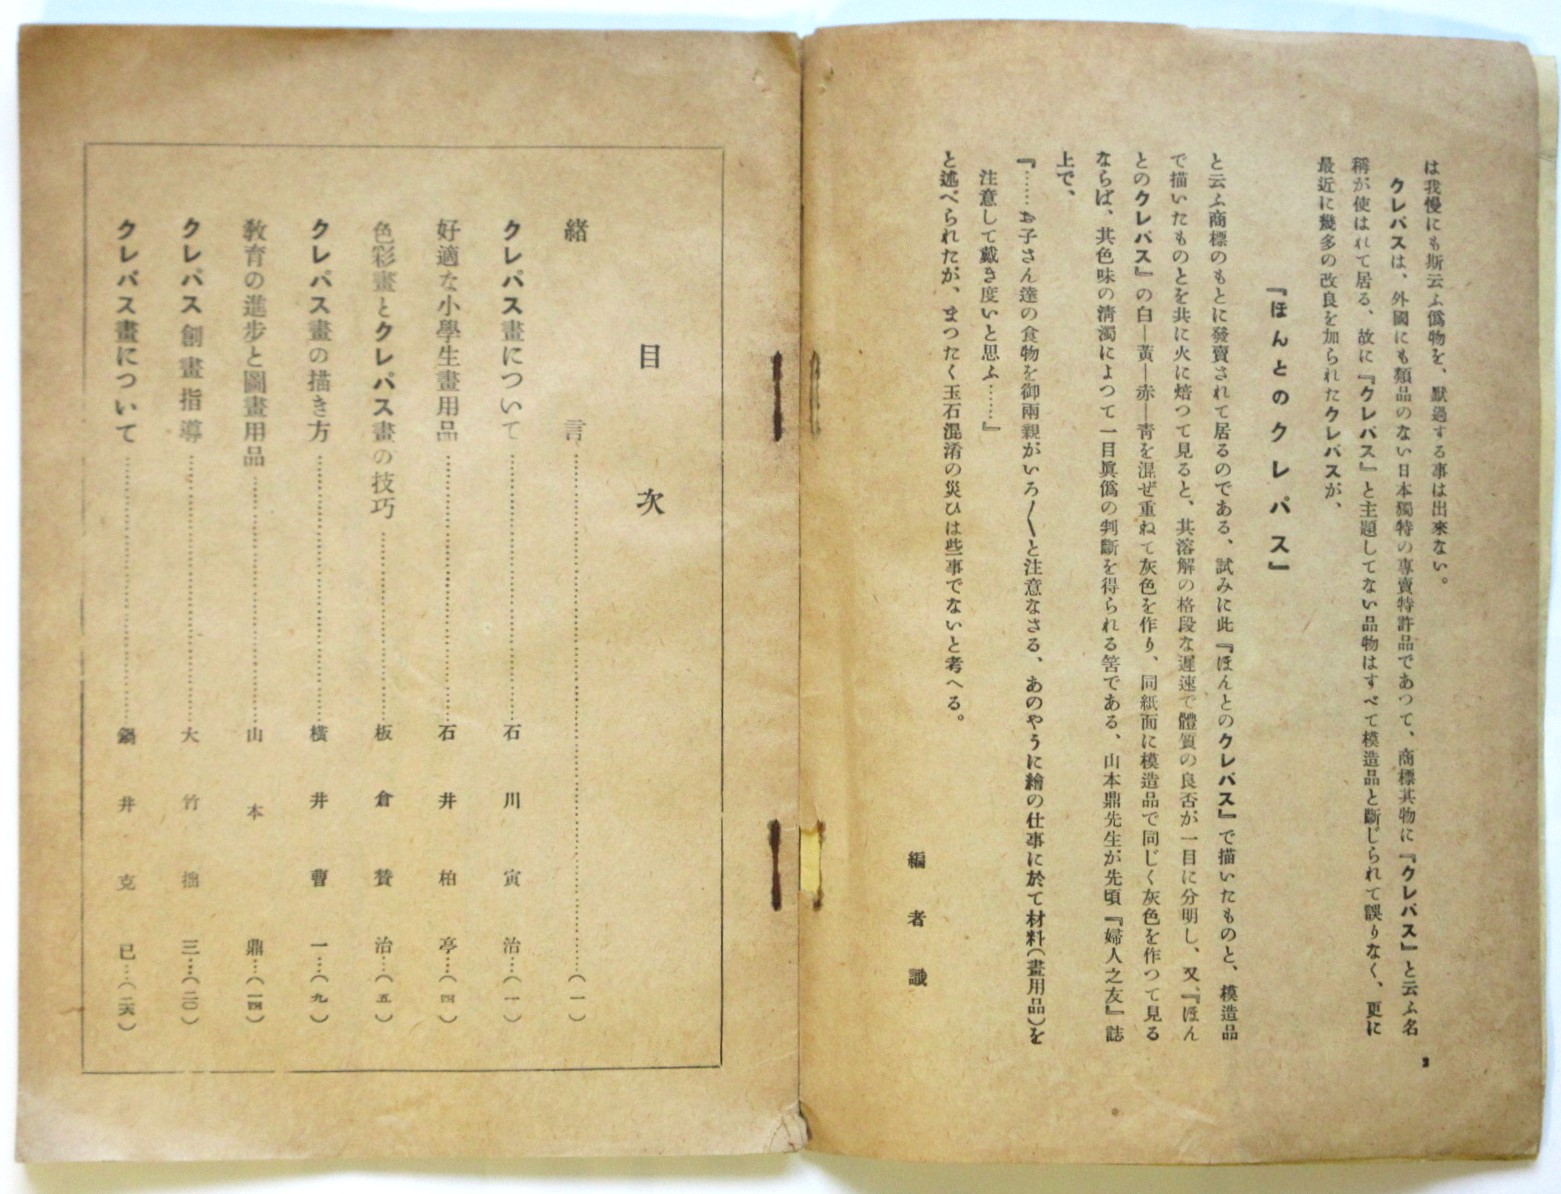 は我慢にも斯云ふ僞物を、默過する事は出來ない。
クレパスは、外國にも類品のない日本獨特の專賣特許品であつて、商標其物に『クレパス』と云ふ名
稱が使はれて居る、故に『クレパス』と主題してない品物はすべて模造品と斷じられて誤りなく、更に
最近に幾多の改良を加られたクレパスが、
『ほんとのクレパス』
と云ふ商標のもとに發賣されて居るのである、試みに此『ほんとのクレパス』で描いたものと、模造品
で描いたものとを共に火に焙つて見ると、其溶解の格段な遲速で體質の良否が一目に分明し、又、『ほん
とのクレパス』の白―黃―赤―靑を混ぜ重ねて灰色を作り、同紙面に模造品で同じく灰色を作つて見る
ならば、其色味の淸濁によつて一目眞僞の判斷を得られる筈である、山本鼎先生が先頃『婦人之友』誌
上で、
『……お子さん達の食物を御兩親がいろ〳〵と注意なさる、あのやうに繪の仕事に於て材料(畫用品)を
注意して戴き度いと思ふ……』
と述べられたが、まつたく玉石混淆の災ひは些事でないと考へる。
編者識
3
目次
緒言……(一)
クレパス畫について……石川寅治…(一)
好適な小學生畫用品……石井柏亭…(四)
色彩畫とクレパス畫の技巧……板倉贊治…(五)
クレパス畫の描き方……橫井曹一…(九)
敎育の進步と圖畫用品……山本鼎…(一四)
クレパス創畫指導……大竹拙三…(二〇)
クレパス畫について……鍋井克已…(二六)